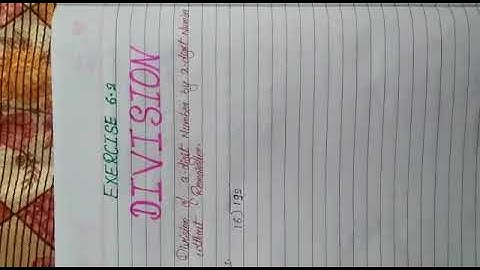 EXERCISE 6.2
DIVISION
Division of a 2-digit Number by 2-digit Number
without Remainder.
1. 16)195